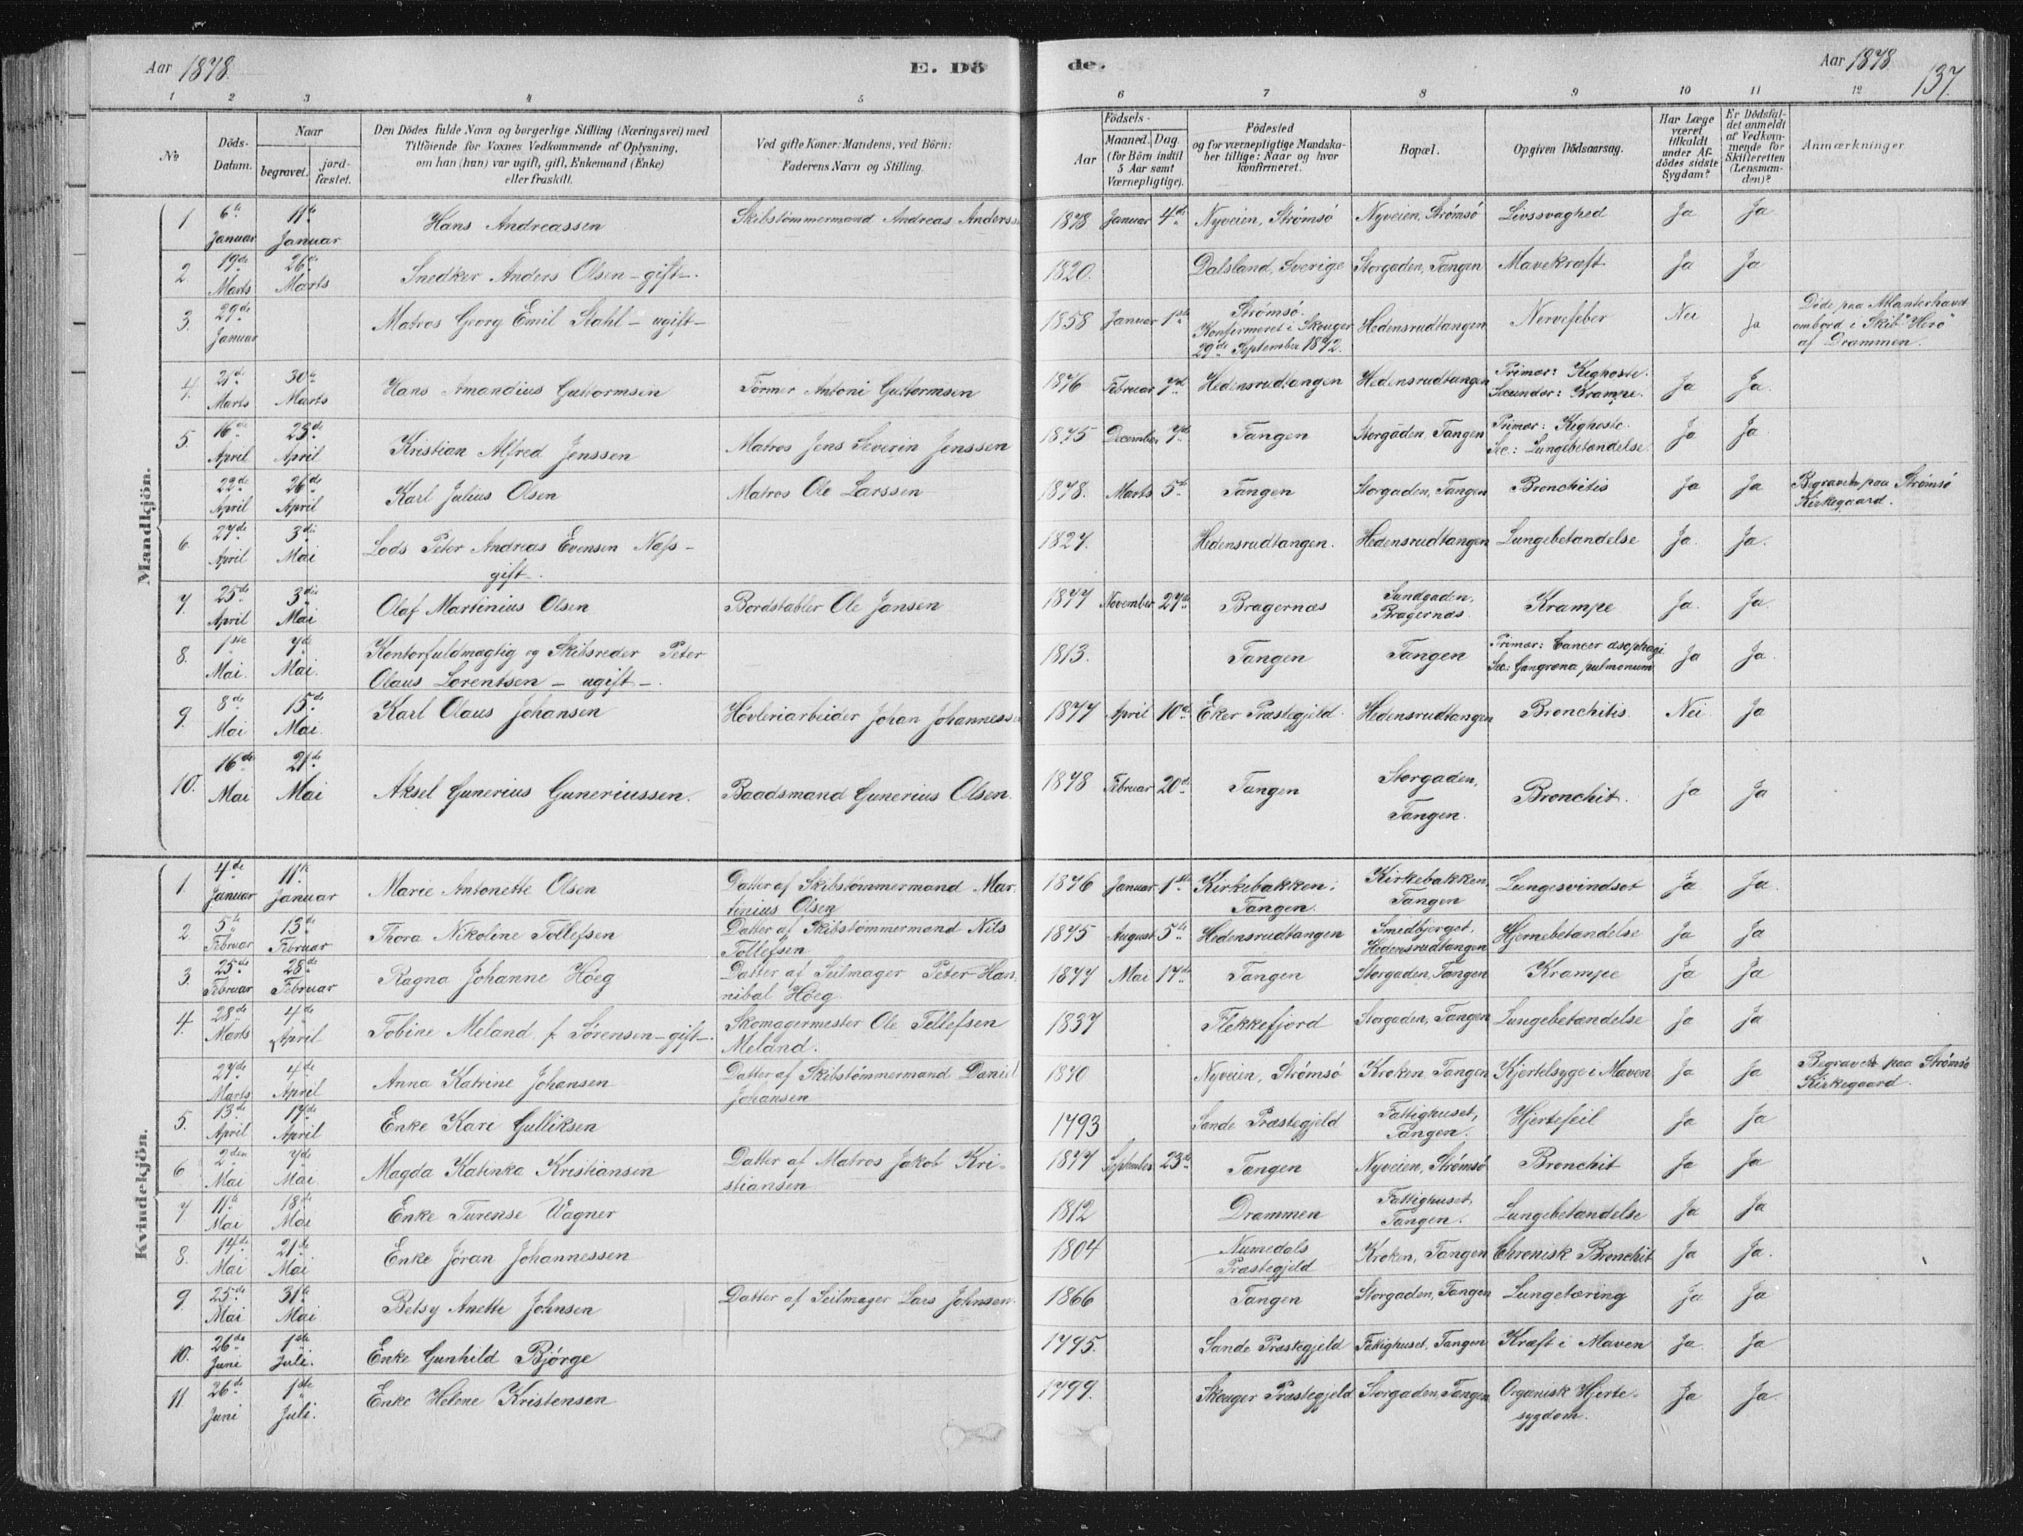 Aar 1878.
E. Dö
de.
Aar 1878.
137.
1 2 3 4 5 6 7 8 9 10 11 12
No
Döds-Datum.
Naar
begravet.
jord-fæstet.
Den Dödes fulde Navn og borgerlige Stilling (Næringsvei) med
Tilföiende for Voxnes Vedkommende af Oplysning,
om han (hun) var ugift, gift, Enkemand (Enke)
eller fraskilt.
Ved gifte Koner: Mandens, ved Börn:
Faderens Navn og Stilling.
Födsels-
Aar
Maaned. Dag.
(for Börn indtil
5 Aar samt
Værnepligtige).
Födested
og for værnepligtige Mandska-
ber tillige: Naar og hvor
konfirmeret.
Bopæl.
Opgiven Dödsaarsag.
Har Læge
været
tilkaldt
under Af-
dödes sidste
Sygdom?
Er Dödsfal-
det anmeldt
af Vedkom-
mende for
Skifteretten
(Lensman-
den)?
Anmærkninger
Mandkjön.
1 6te Januar 11te Januar Hans Andreassen Skibstømmermand Andreas Anderss 1878 Januar 4de Nyveien, Strømsø Nyveien, Strømsø Livssvaghed Ja Ja
2 19de Marts 26de Marts Snedker Anders Olsen - gift -. 1820. Dalsland, Sverige Storgaden, Tangen Mavekræft Ja Ja
3. 29de Januar Matros Georg Emil Stahl - ugift - 1858 Januar 1ste Strømsø. Konfirmeret i Skouger 29de September 1872. Hedensrudtangen Nervefeber Nei Ja Døde paa Atlanterhavet ombord i Skib "Hero" af Drammen.
4. 21de Marts 30te Marts Hans Amandius Guttormsen Former Antoni Guttormsen 1876 Februar 7de Hedensrudtangen Hedensrudtangen Primær: Kighoste. Secundær: Krampe. Ja Ja.
5. 16de April 25de April Kristian Alfred Jenssen Matros Jens Severin Jenssen 1875 December 7de Tangen Storgaden, Tangen Primær: Kighoste. Sec.: Lungebetændelse. Ja Ja.
22de April 26de April Karl Julius Olsen Matros Ole Larssen 1878. Marts 5te Tangen Storgaden, Tangen Bronchitis Ja Ja Begraven paa Strømsø Kirkegaard.
6. 27de April 3die Mai Lods Peter Andreas Evensen Næss - gift -. 1827. Hedensrudtangen. Hedensrudtangen Lungebetændelse Ja. Ja.
7. 25de April 3die Mai Olaf Martinius Olsen Bordstabler Ole Jansen 1877 November 27de Bragernæs Sundgaden, Bragernæs Krampe Ja. Ja.
8. 1ste Mai. 7de Mai. Kontorfuldmægtig og Skibsreder Peter Olaus Lorentsen - ugift -. 1813. Tangen Tangen Primær: Cancer æsophagi Sec: Gangræna pulmonum Ja Ja.
9. 8de Mai 15de Mai. Karl Olaus Johansen Høvleriarbeider Johan Johannessen 1877 April 10de Eker Præstegjeld. Hedensrudtangen Bronchitis Nei Ja
10. 16de Mai 21de Mai Aksel Gunerius Guneriussen. Baadsmand Gunerius Olsen. 1878 Februar 20de Tangen Storgaden, Tangen. Bronchit. Ja Ja
Kvindekjön.
1. 4de Januar 11te Januar Marie Antonette Olsen Datter af Skibstømmermand Mar- tinius Olsen 1876 Januar 1ste Kirkebakken, Tangen. Kirkebakken, Tangen Lungesvindsot Ja Ja.
2 5te Februar 13de Februar Thora Nikoline Tollefsen Datter af Skibstømmermand Nils Tollefsen 1875 August 5te Hedensrudtangen Smedbjerget, Hedensrudtangen Hjernebetændelse Ja Ja
3. 25de Februar 28de Februar Ragna Johanne Höeg Datter af Seilmager Peter Han- nibal Höeg 1877 Mai 17de Tangen Storgaden, Tangen Krampe Ja Ja
4. 28de Marts 4de April Tobine Meland f. Sørensen - gift -. Skomagermester Ole Tellefsen Meland. 1837 Flekkefjord Storgaden, Tangen Lungebetændelse Ja Ja
27de Marts 4de April Anna Katrine Johansen Datter af Skibstømmermand Daniel Johansen 1870 Nyveien, Strømsø Kroken, Tangen Kjertelsyge i Maven Ja Ja Begraven paa Strømsø Kirkegaard.
5. 13de April 17de April Enke Kari Gulliksen 1793 Sande Præstegjeld Fattighuset, Tangen. Hjertefeil Ja Ja
6 2den Mai 7de Mai. Magda Katinka Kristiansen Datter af Matros Jakob Kri- stiansen 1877 September 23de Tangen Nyveien, Strømsø Bronchit Ja Ja.
7 11te Mai 18de Mai Enke Turense Wagner 1812 Drammen Fattighuset, Tangen. Lungebetændelse Ja Ja
8. 14de Mai 21de Mai Enke Jöran Johannessen 1804 Numedals Præstegjeld Kroken, Tangen Chronisk Bronchit Ja Ja.
9. 25de Mai 31te Mai Betsy Anette Johnsen Datter af Seilmager Lars Johnsen. 1866 Tangen Storgaden, Tangen Lungetæring Ja Ja
10. 26de Juni 1ste Juli. Enke Gunhild Bjørge 1795. Sande Præstegjeld Fattighuset, Tangen Kræft i Maven Ja Ja
11 26de Juni 1ste Juli. Enke Helene Kristensen 1799. Skouger Præstegjeld Storgaden, Tangen Organisk Hjerte- sygdom. Ja Ja.